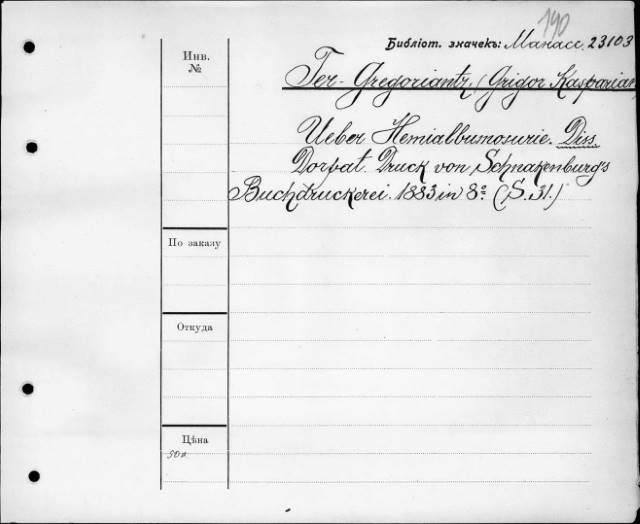 190
Библіот. значекъ: Манасс. 23103
Инв. №
Ter-Gregoriantz, (Grigor Kasparian
Ueber Hemialbumosurie. Diss.
Dorpat. Druck von Schnakenburg's
Buchdruckerei. 1883 in 8º (S. 31.)
По заказу
Откуда
Цѣна